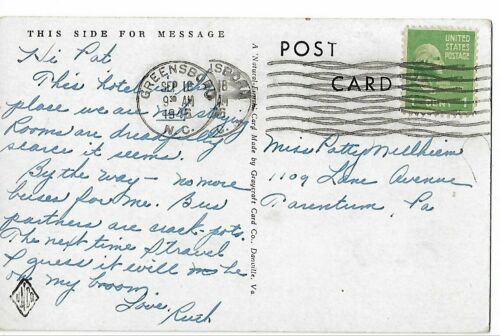 THIS SIDE FOR MESSAGE
Hi Pat
This hotel
place we are not staying
Rooms are dreadfully
scarce it seems.
By the way – no more
buses for me. Bus
partners are crack-pots.
The next time I travel
I guess it will me be
on my broom.
Love,
Ruth
GREENSBORO
SEP 18
9 30 AM
1946
N.C.
A "Natural-Finish" Card Made by Graycraft Card Co., Danville, Va.
POST
CARD
UNITED
STATES
POSTAGE
1 CENT 1
Miss Patty Millheim
1109 Lane Avenue
Tarentum, Pa